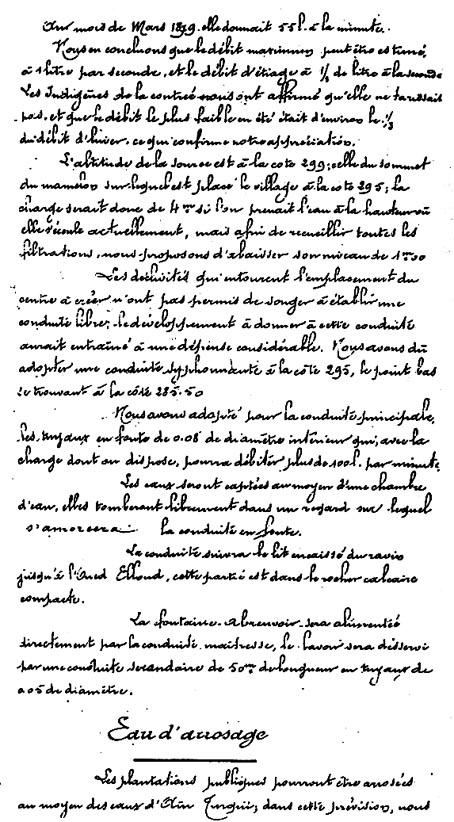 Au mois de Mars 1879 elle donnait 55 l. à la minute.
Nous en concluons que le débit maximum peut être estimé,
à 1 litre par seconde, et le débit d'étiage à 1/3 de litre à la seconde
Les Indigènes de la contrée nous ont affirmé qu'elle ne tarissait
pas, et que le débit le plus faible en été était d'environ le 1/3
du débit d'hiver, ce qui confirme notre appréciation.
L'altitude de la source est à la cote 299; celle du sommet
du mamelon sur lequel est placé le village à la cote 295; la
charge serait donc de 4m si l'on prenait l'eau à la hauteur où
elle s'écoule actuellement, mais afin de recueillir toutes les
filtrations, nous proposons d'abaisser son niveau de 1m00
Les déclivités qui entourent l'emplacement du
centre à créer n'ont pas permis de songer à établir une
conduite libre; le développement à donner à cette conduite
aurait entraîné à une dépense considérable. Nous avons dû
adopter une conduite syphonnante à la côte 295, le point bas
se trouvant à la côté 285.50
Nous avons adopté pour la conduite principale,
les tuyaux en fonte de 0.08 de diamètre intérieur qui, avec la
charge dont on dispose, pourra débiter plus de 100 l. par minute
Les eaux seront captées au moyen d'une chambre
d'eau, elles tomberont librement dans un regard sur lequel
s'amorcera la conduite en fonte.
La conduite suivra le lit encaissé du ravin
jusqu'à l'Oued Elloud, cette partie est dans le rocher calcaire
compacte.
La fontaine-abreuvoir sera alimentée
directement par la conduite maîtresse, le lavoir sera desservi
par une conduite secondaire de 50m de longueur en tuyaux de
0.05 de diamètre.
Eau d'arrosage
Les plantations publiques pourront être arrosées
au moyen des eaux d'Aïn; dans cette prévision, nous